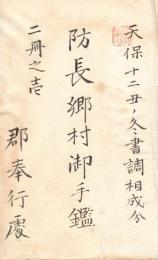 天保十二丑ノ冬書調相成分
防長郷村御手鑑
二冊之壱
郡奉行處